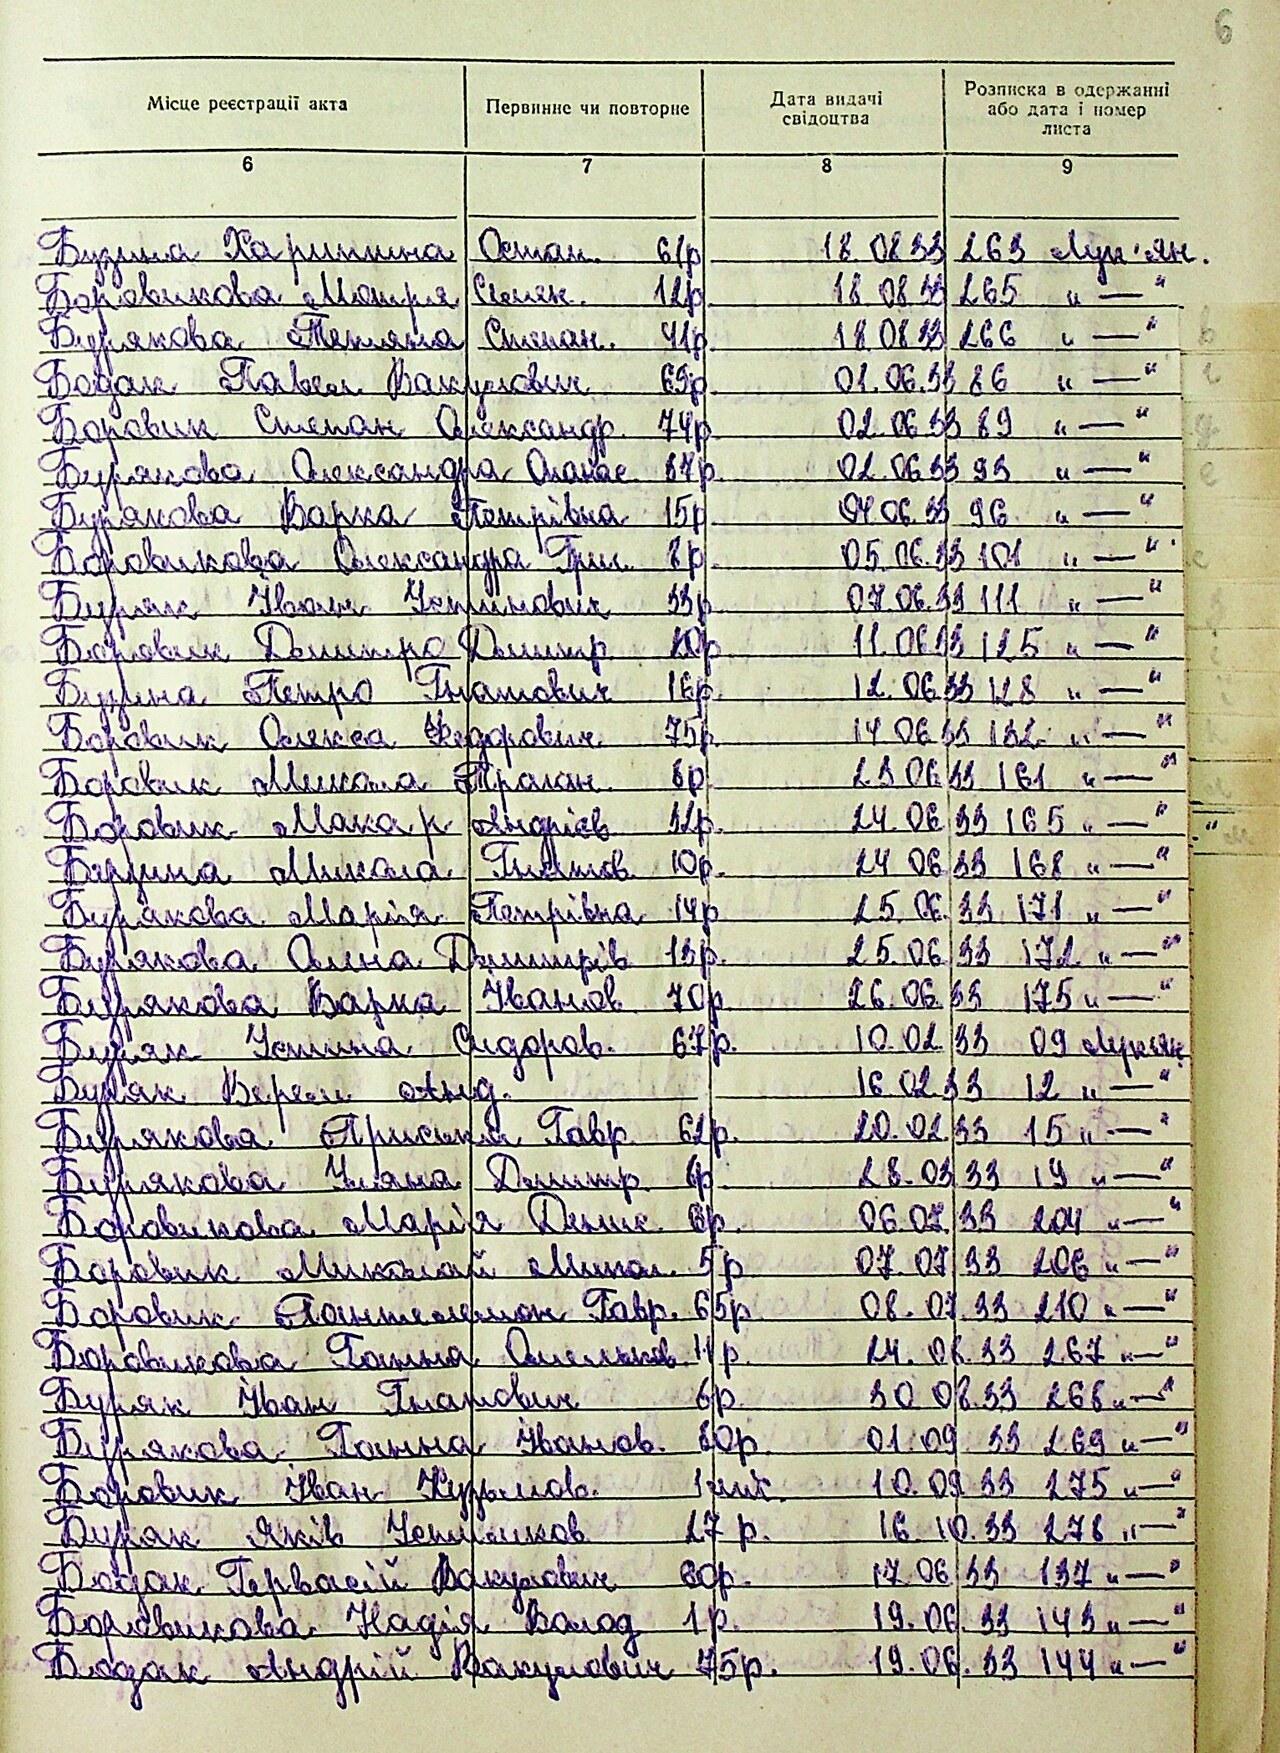 6
Місце реєстрації акта Первинне чи повторне Дата видачі свідоцтва Розписка в одержанні або дата і номер листа
6 7 8 9
Бузина Харитина Остап. 61р 18.08 33 263 Лук'ян.
Боровикова Мотря Семен. 12р 18.08 33 265 „—"
Бурякова Тетяна Степан. 41р. 18.08 33 266 „—"
Бодак Павел Вакулович 65р. 01.06.33 86 „—"
Боровик Степан Олександр. 74р. 02.06.33 89 „—"
Бурякова Олександра Опанас 37р. 02.06.33 93 „—"
Бурякова Варка Петрівна 15р. 04 06.33 96 „—"
Боровикова Олександра Григ. 8р. 05.06.33 101 „—"
Буряк Іван Устинович 33р. 07.06.33 111 „—"
Боровик Дмитро Дмитр. 20р. 11.06 33 125 „—"
Бузина Петро Гнатович 16р. 12.06.33 128 „—"
Боровик Олекса Федорович 75р. 14 06 33 132 „—"
Боровик Микола 8р. 23.06 33 161 „—"
Боровик Макар Андрієв 32р. 24.06 33 165 „—"
Бузина Микола Гнатов 10р. 24 06 33 168 „—"
Бурякова Марія Петрівна 14р 25.06.33 171 „—"
Бурякова Олена Дмитрів 13р. 25.06 33 172 „—"
Бурякова Варка Іванов 70р. 26.06.33 175 „—"
Буряк Устина Сидоров. 67р. 10.02 33 09 Лукян.
Буряк Верем Анд. 16.02.33 12 „—"
Бурякова Приська Гавр. 62р. 20.02.33 15 „—"
Бурякова Уляна Дмитр. 6р. 28.03 33 19 „—"
Боровикова Марія Денис. 8р. 06.07. 33 204 „—"
Боровик Миколай Микол. 5р 07.07 33 206 „—"
Боровик Пантелемон Гавр. 65р. 08.07.33 210 „—"
Боровикова Ганна Омельков. 11р. 24.08.33 267 „—"
Буряк Іван Гнатович 6р. 30 08.33 268 „—"
Бурякова Ганна Іванов. 80р. 01.09 33 269 „—"
Боровик Іван Кузьмов. 1 міс. 10.09 33 275 „—"
Буряк Яків Устимков 27 р. 16.10.33 278 „—"
Бодак Гервасій Вакулович 60р. 17.06 33 137 „—"
Боровикова Надія Волод 1р. 19.06.33 143 „—"
Бодак Андрій Вакулович 75р. 19.06.33 144 „—"